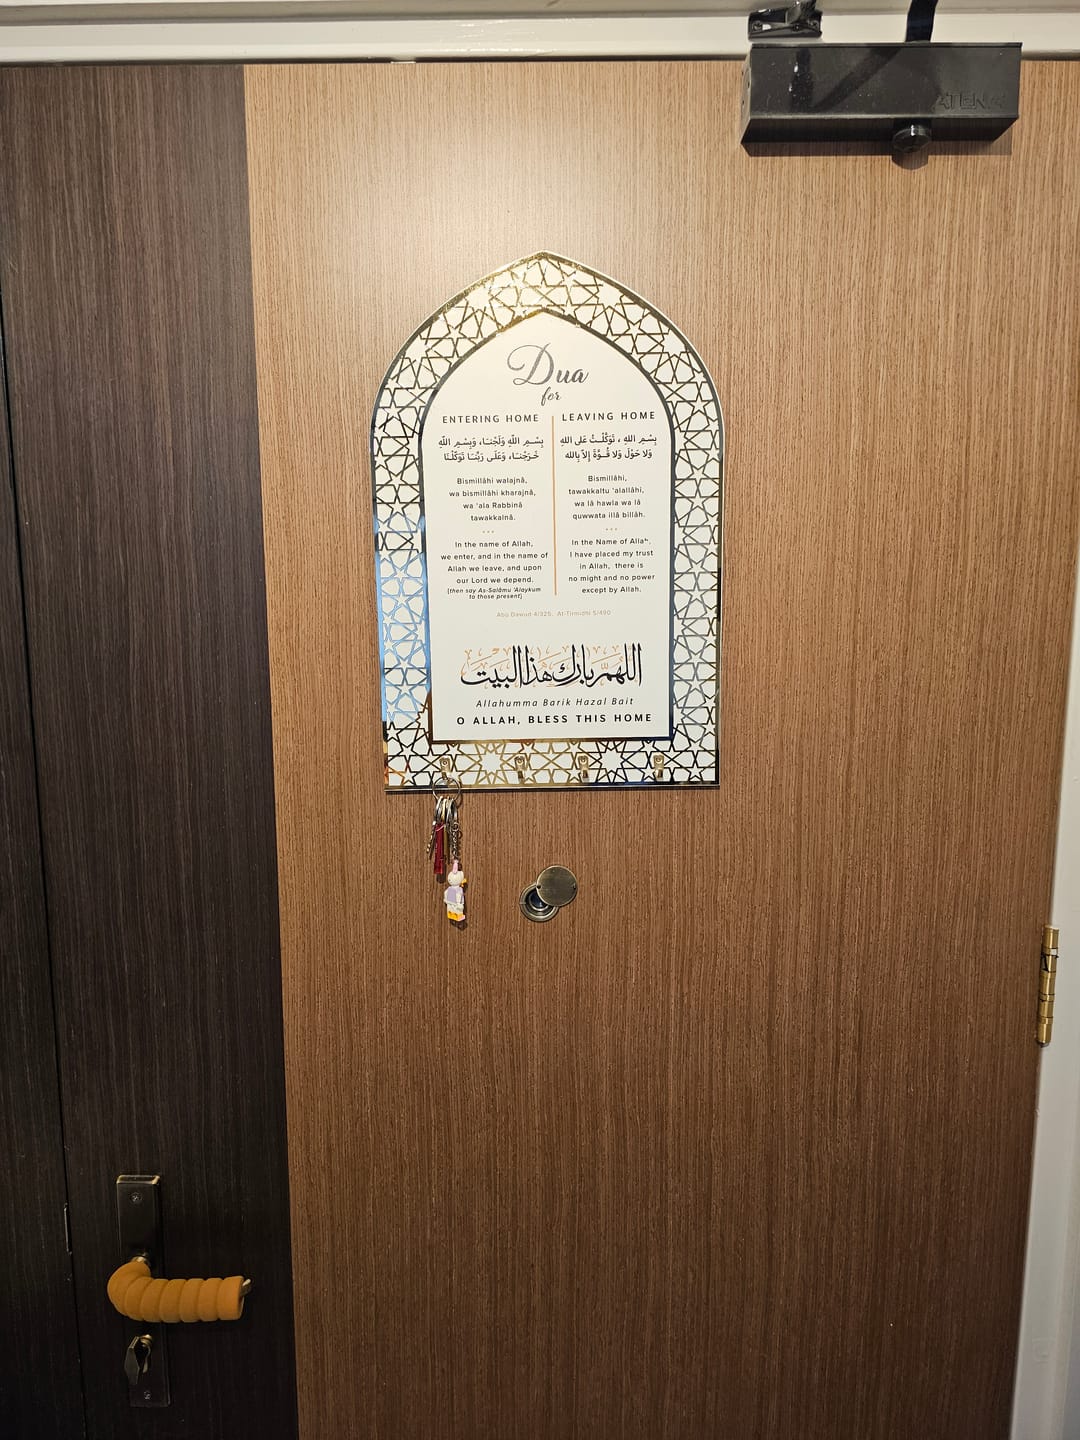 ATENA
Dua
for
ENTERING HOME
بِسْمِ اللَّهِ وَلَجْنَـا، وَبِسْمِ اللَّهِ
خَرَجْنَـا، وَعَلَى رَبِّنَـا تَوَكَّلْنَا
Bismillâhi walajnâ,
wa bismillâhi kharajnâ,
wa 'ala Rabbinâ
tawakkalnâ.
In the name of Allah,
we enter, and in the name of
Allah we leave, and upon
our Lord we depend.
(then say As-Salâmu 'Alaykum
to those present)
LEAVING HOME
بِسْمِ اللهِ ، تَوَكَّلْـتُ عَلى اللهِ
وَلا حَوْلَ وَلا قُـوَّةَ إِلاّ بِالله
Bismillâhi,
tawakkaltu 'alallâhi,
wa lâ hawla wa lâ
quwwata illâ billâh.
In the Name of Allah,
I have placed my trust
in Allah, there is
no might and no power
except by Allah.
Abu Dawud 4/325, At-Tirmidhi 5/490
اللهم بارك هذا البيت
Allahumma Barik Hazal Bait
O ALLAH, BLESS THIS HOME